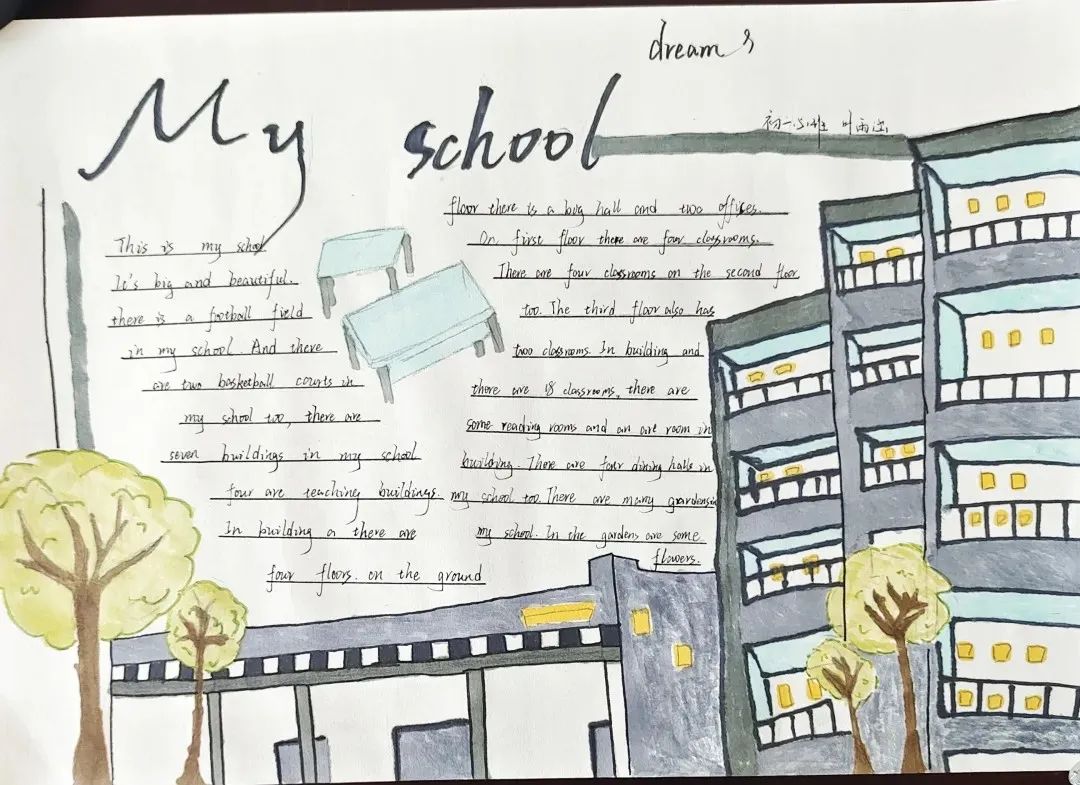 dream
My school
初一
This is my school
It's big and beautiful.
there is a football field
in my school. And there
are two basketball courts in
my school too, there are
seven buildings in my school
four are teaching buildings.
In building a there are
four floors. on the ground
floor there is a big hall and two offices.
On first floor there are four classrooms.
There are four classrooms on the second floor
too. The third floor also has
two classrooms. In building and
there are 18 classrooms, there are
some reading rooms and an are room in
building. There are four dining halls in
my school too. There are many grardensin
my school. In the gardens are some
flowers.